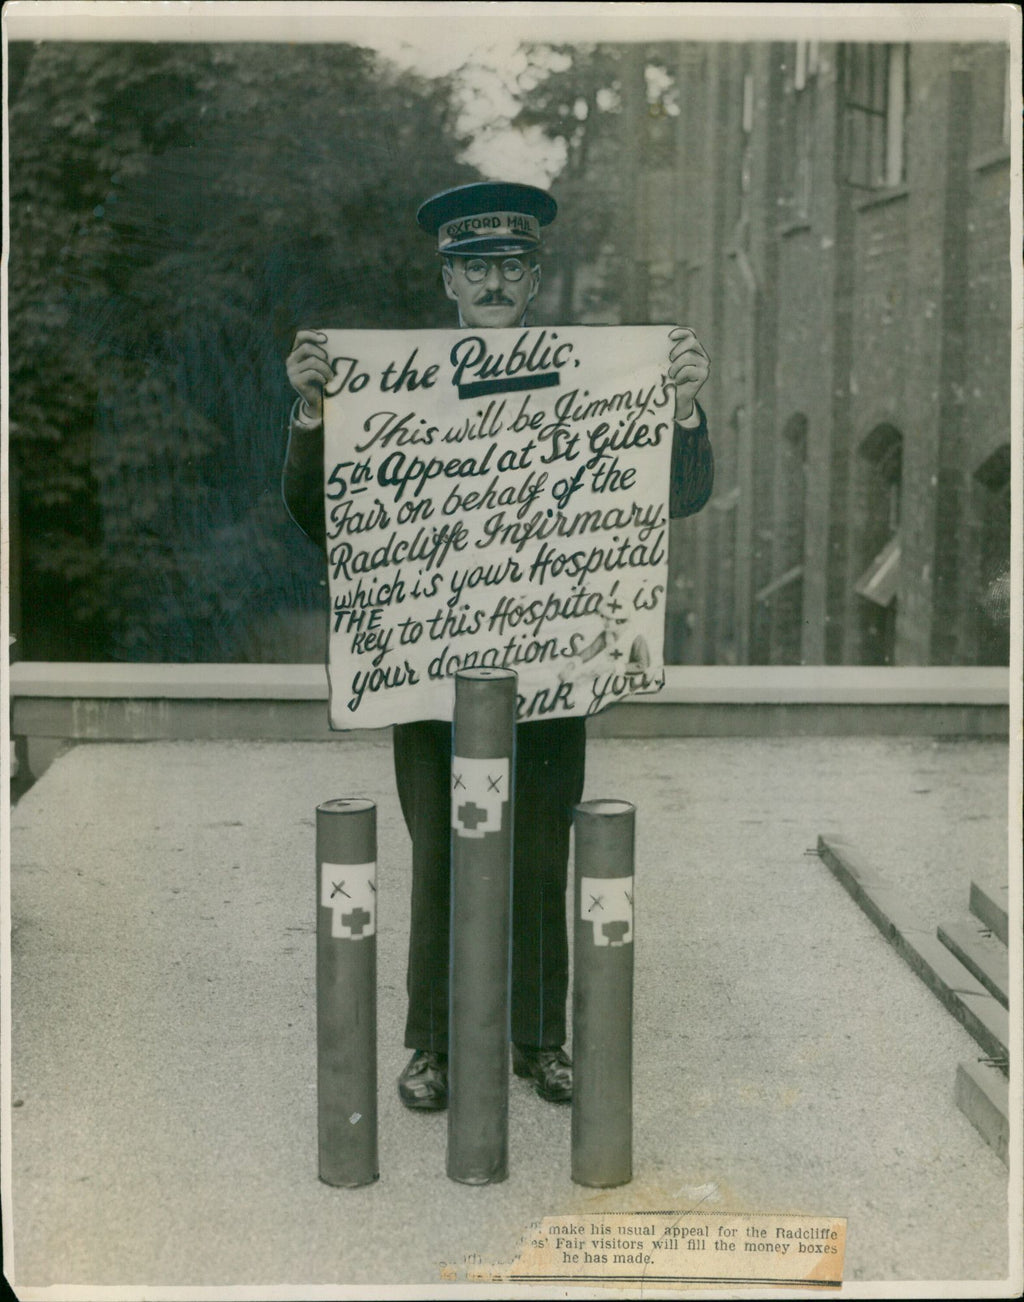 OXFORD MAIL
To the Public.
This will be Jimmy's
5th Appeal at St Giles
Fair on behalf of the
Radcliffe Infirmary.
which is your Hospital
THE
key to this Hospital + is
your donations
ank you.
make his usual appeal for the Radcliffe
es' Fair visitors will fill the money boxes
he has made.